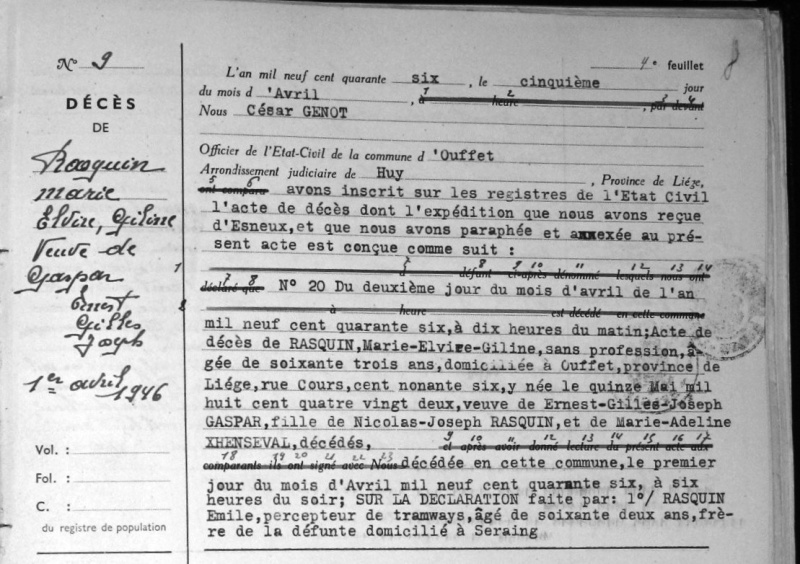 N° 9
DÉCÈS
DE
Rasquin
Marie
Elvire, Giline
Veuve de
Gaspar
Ernest
Gilles
Joseph
1er avril
1946
Vol. :
Fol. :
C. :
du registre de population
4e feuillet
8
L'an mil neuf cent quarante six , le cinquième jour
du mois d 'Avril , à heure , par devant
Nous César GENOT
Officier de l'Etat-Civil de la commune d 'Ouffet
Arrondissement judiciaire de Huy , Province de Liége,
ont comparu avons inscrit sur les registres de l'Etat Civil
l'acte de décès dont l'expédition que nous avons reçue
d'Esneux,et que nous avons paraphée et annexée au pré-
sent acte est conçue comme suit :
défaut ci-après dénommé lesquels nous ont
déclaré que N° 20 Du deuxième jour du mois d'avril de l'an
à heure est décédé en cette commune
mil neuf cent quarante six,à dix heures du matin;Acte de
décès de RASQUIN,Marie-Elvire-Giline,sans profession,â-
gée de soixante trois ans,domiciliée à Ouffet,province de
Liége,rue Cours,cent nonante six,y née le quinze Mai mil
huit cent quatre vingt deux,veuve de Ernest-Gilles-Joseph
GASPAR,fille de Nicolas-Joseph RASQUIN,et de Marie-Adeline
XHENSEVAL,décédés, et après avoir donné lecture du présent acte aux
comparants ils ont signé avec Nous décédée en cette commune,le premier
jour du mois d'Avril mil neuf cent quarante six, à six
heures du soir; SUR LA DECLARATION faite par: 1°/ RASQUIN
Emile,percepteur de tramways,âgé de soixante deux ans,frè-
re de la défunte domicilié à Seraing